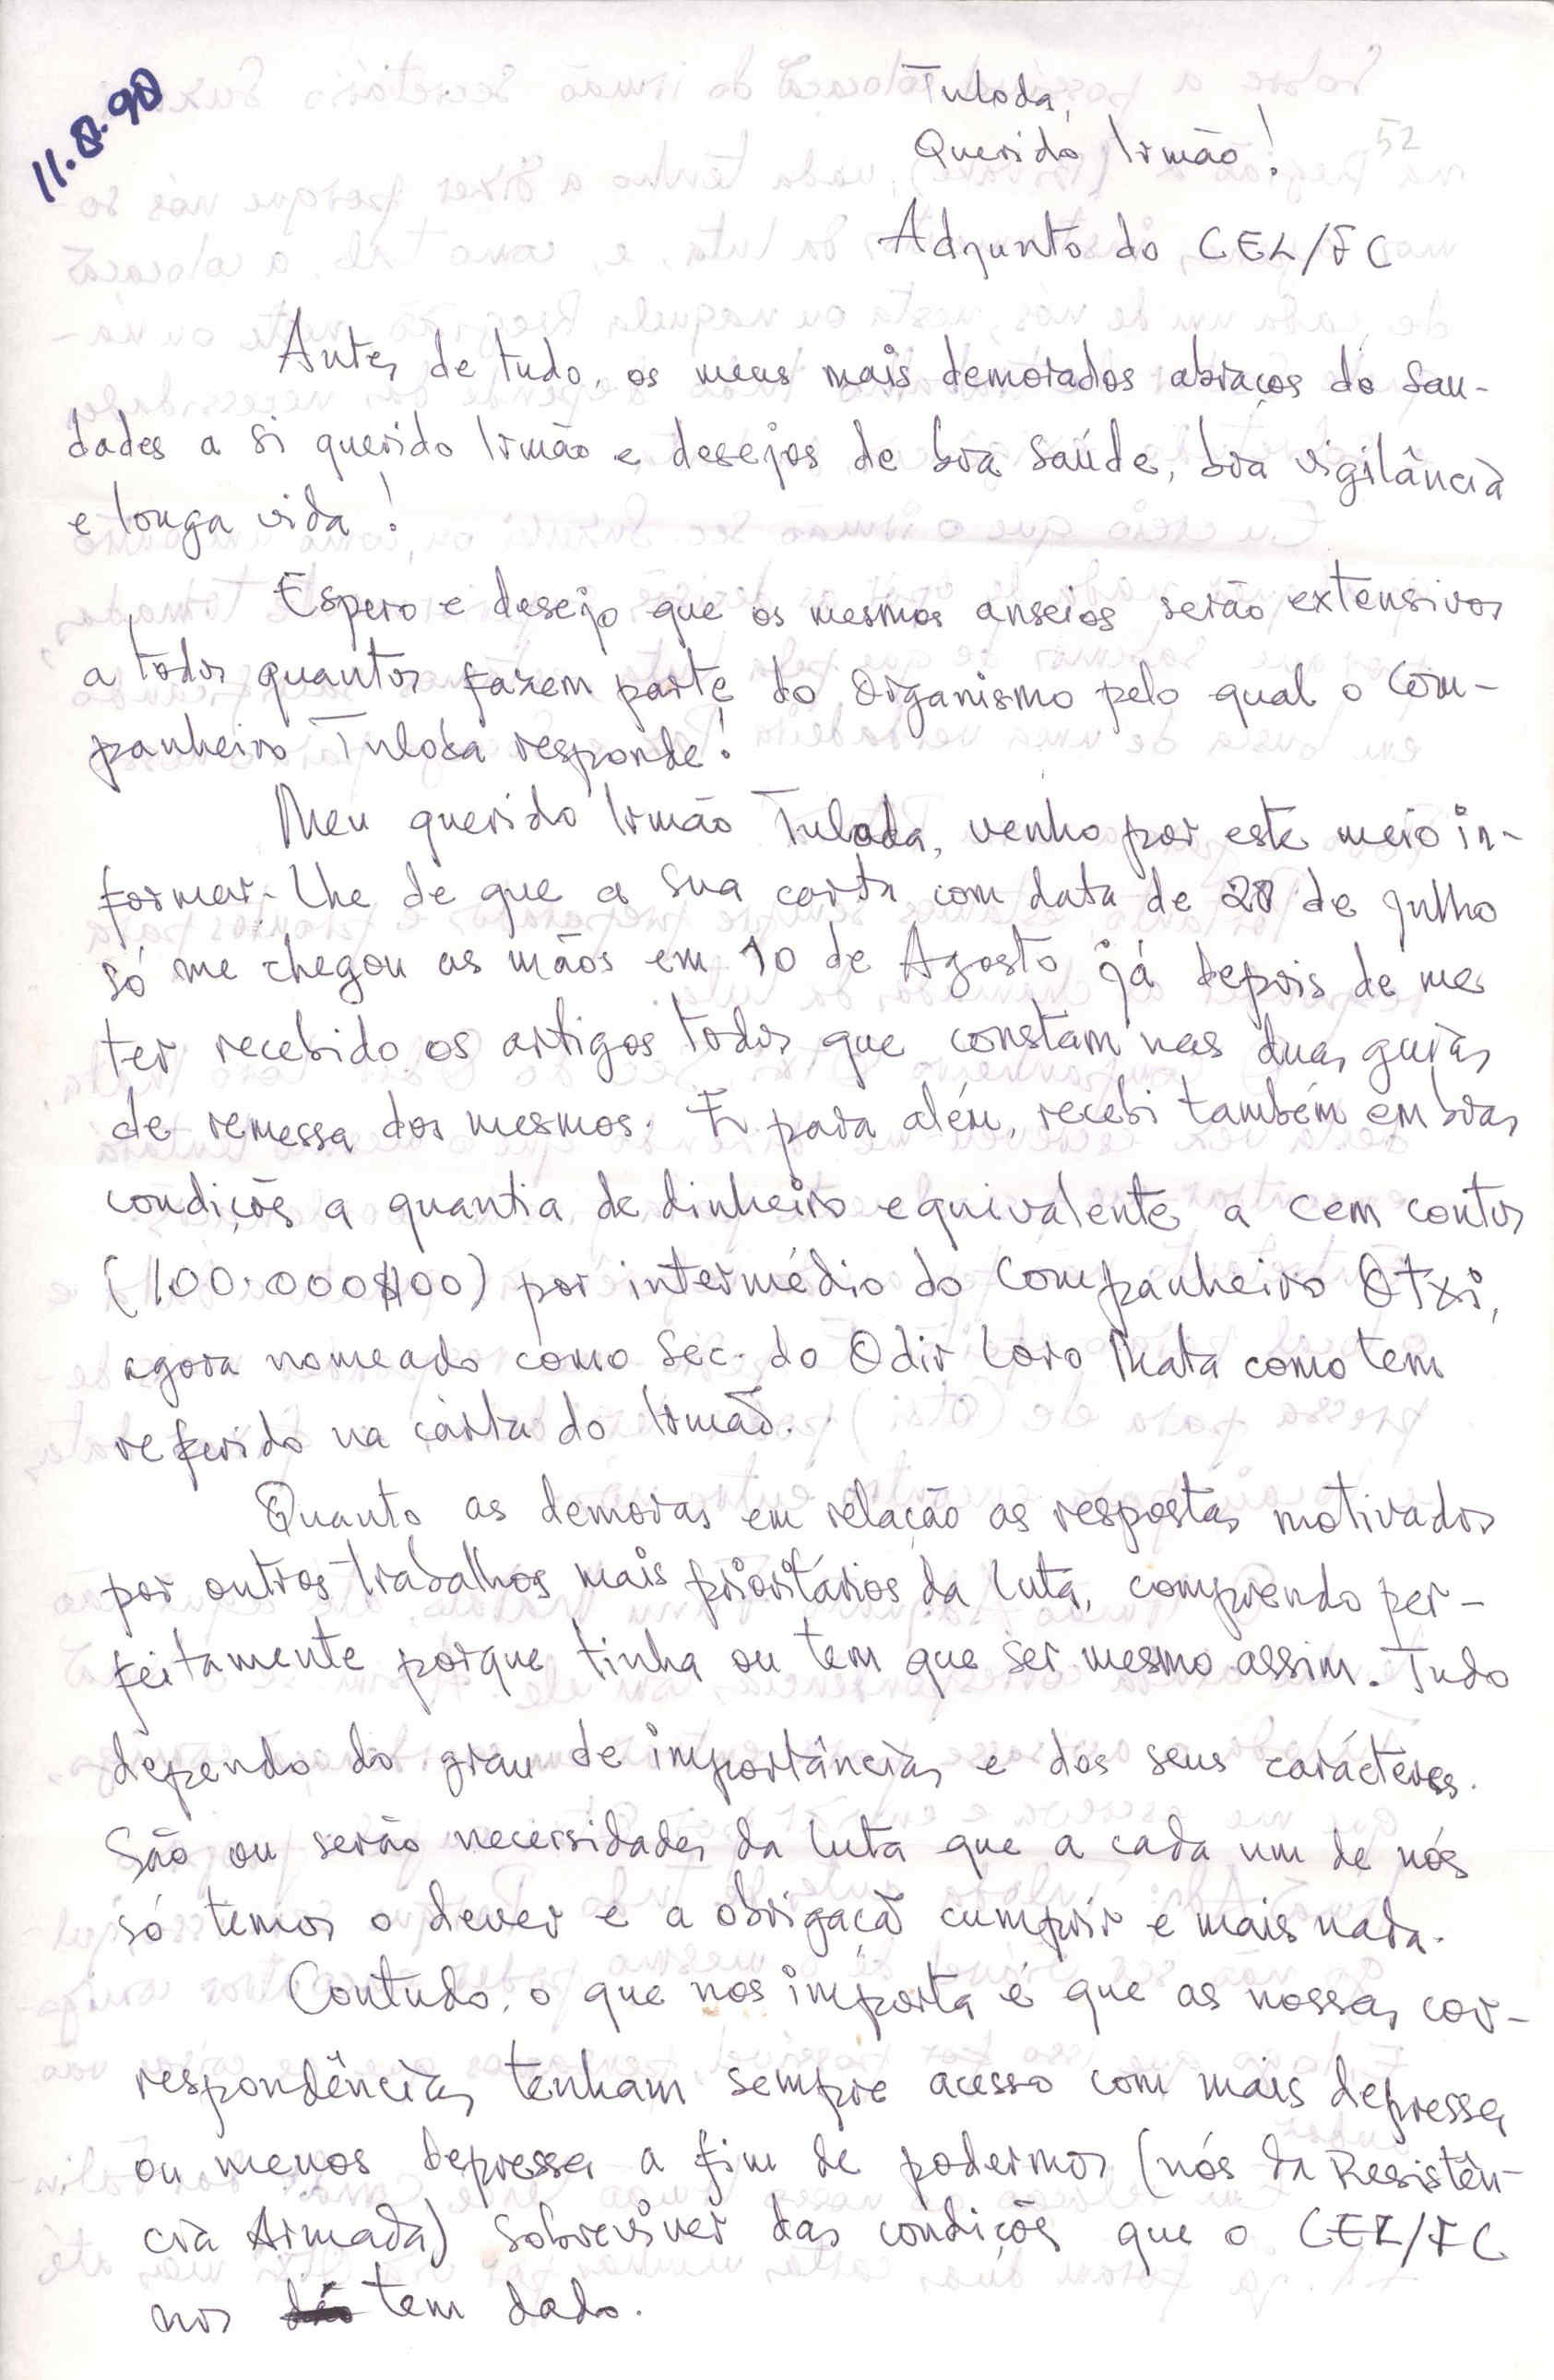 11.8.90
Tuloda,
Querido Irmão!
52
Adjunto do CEL/FC
Antes de tudo, os meus mais demorados abraços de Sau-
dades a si querido Irmão e desejos de boa saúde, boa vigilância
e longa vida!
Espero e desejo que os mesmos anseios serão extensivos
a todos quantos fazem parte do Organismo pelo qual o Com-
panheiro Tuloda responde!
Meu querido Irmão Tuloda, venho por este meio in-
formar-lhe de que a sua carta com data de 28 de julho
só me chegou as mãos em 10 de Agosto já depois de me
ter recebido os artigos todos que constam nas duas guias
de remessa dos mesmos. E para além, recebi também em boas
condiçõs a quantia de dinheiro equivalente a cem contos
(100.000$00) por intermédio do Companheiro Otxi,
agora nomeado como Sec. do Odir Loro Mata como tem
referido na carta do Irmão.
Quanto as demoras em relação as respostas motivados
por outros trabalhos mais prioritários da luta, comprendo per-
feitamente porque tinha ou tem que ser mesmo assim. Tudo
dependo do grau de importâncias e dos seus carácteres.
São ou serão necessidades da luta que a cada um de nós
só temos o dever e a obrigaçã cumprir e mais nada.
Contudo, o que nos importa é que as nossas cor-
respondências tenham sempre acesso com mais depressa
ou menos depressa a fim de podermos (nós da Resistên-
cia Armada) sobreviver das condiçõs que o CEL/FC
nos tem dado.